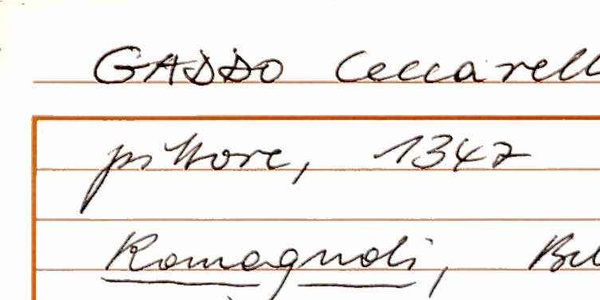 GADDO Ceccarell
pittore, 1347
Romagnoli, Bel